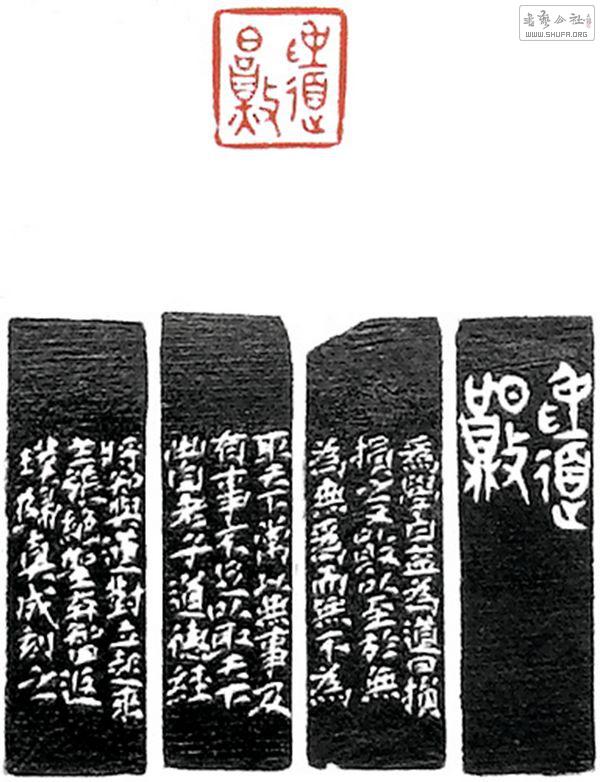 為道
日損
為道
日損
為學日益為道日損
損之又損以至於無
為無為而無不為
取天下常以無事及
有事不足以取天下
出自老子道德經
將知與道對立起來
主張絕聖弃智回返
璞歸真成刻之
书艺公社
WWW.SHUFA.ORG